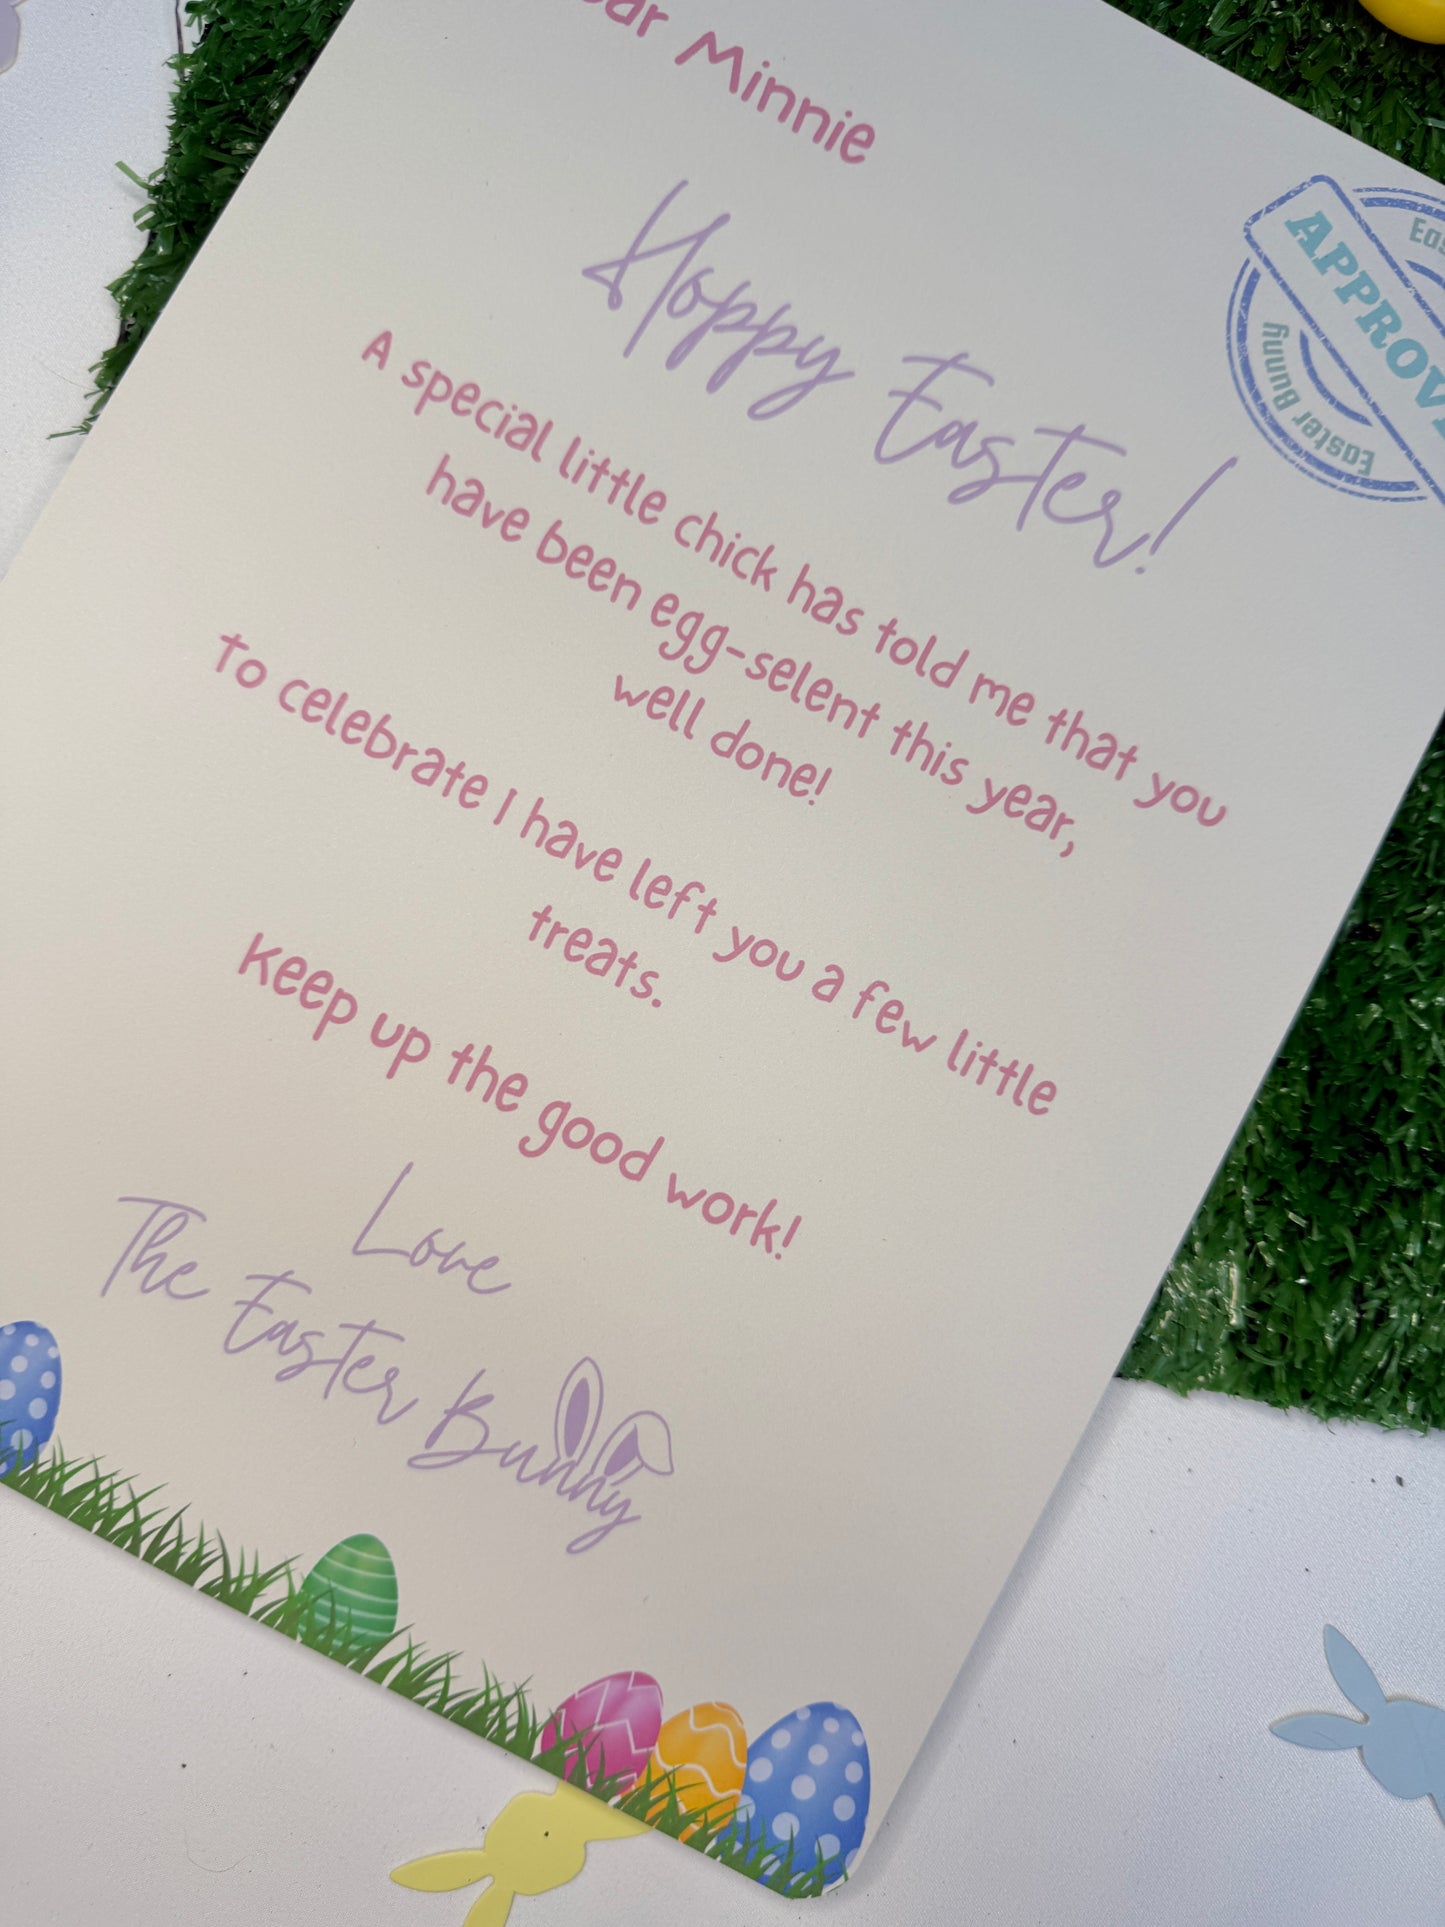 Dear Minnie
Hoppy Easter!
A special little chick has told me that you
have been egg-selent this year,
well done!
To celebrate I have left you a few little
treats.
Keep up the good work!
Love
The Easter Bunny
APPROVE
Eas
Easter Bunny